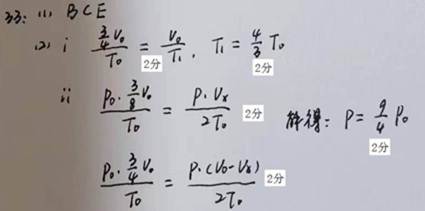 33: (1) BCE
(2) i (3/4 V₀)/T₀ = V₀/T₁, T₁ = 4/3 T₀
2分 2分
ii (P₀·3/8 V₀)/T₀ = (P·Vₓ)/2T₀ 2分 解得: P = 9/4 P₀
2分
(P₀·3/4 V₀)/T₀ = (P·(V₀-Vₓ))/2T₀ 2分